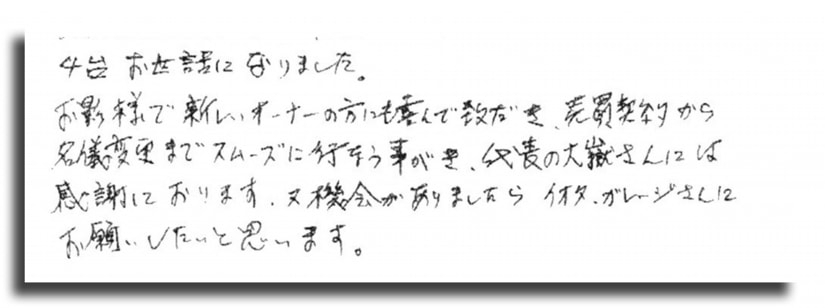 4台 お世話になりました。
お影様で新しいオーナーの方にも喜んで致だき、売買契約から
名儀変更までスムーズに行なう事がき、代表の大嶽さんには
感謝しております。又機会がありましたら イオタ、ガレージさんに
お願いしたいと思います。